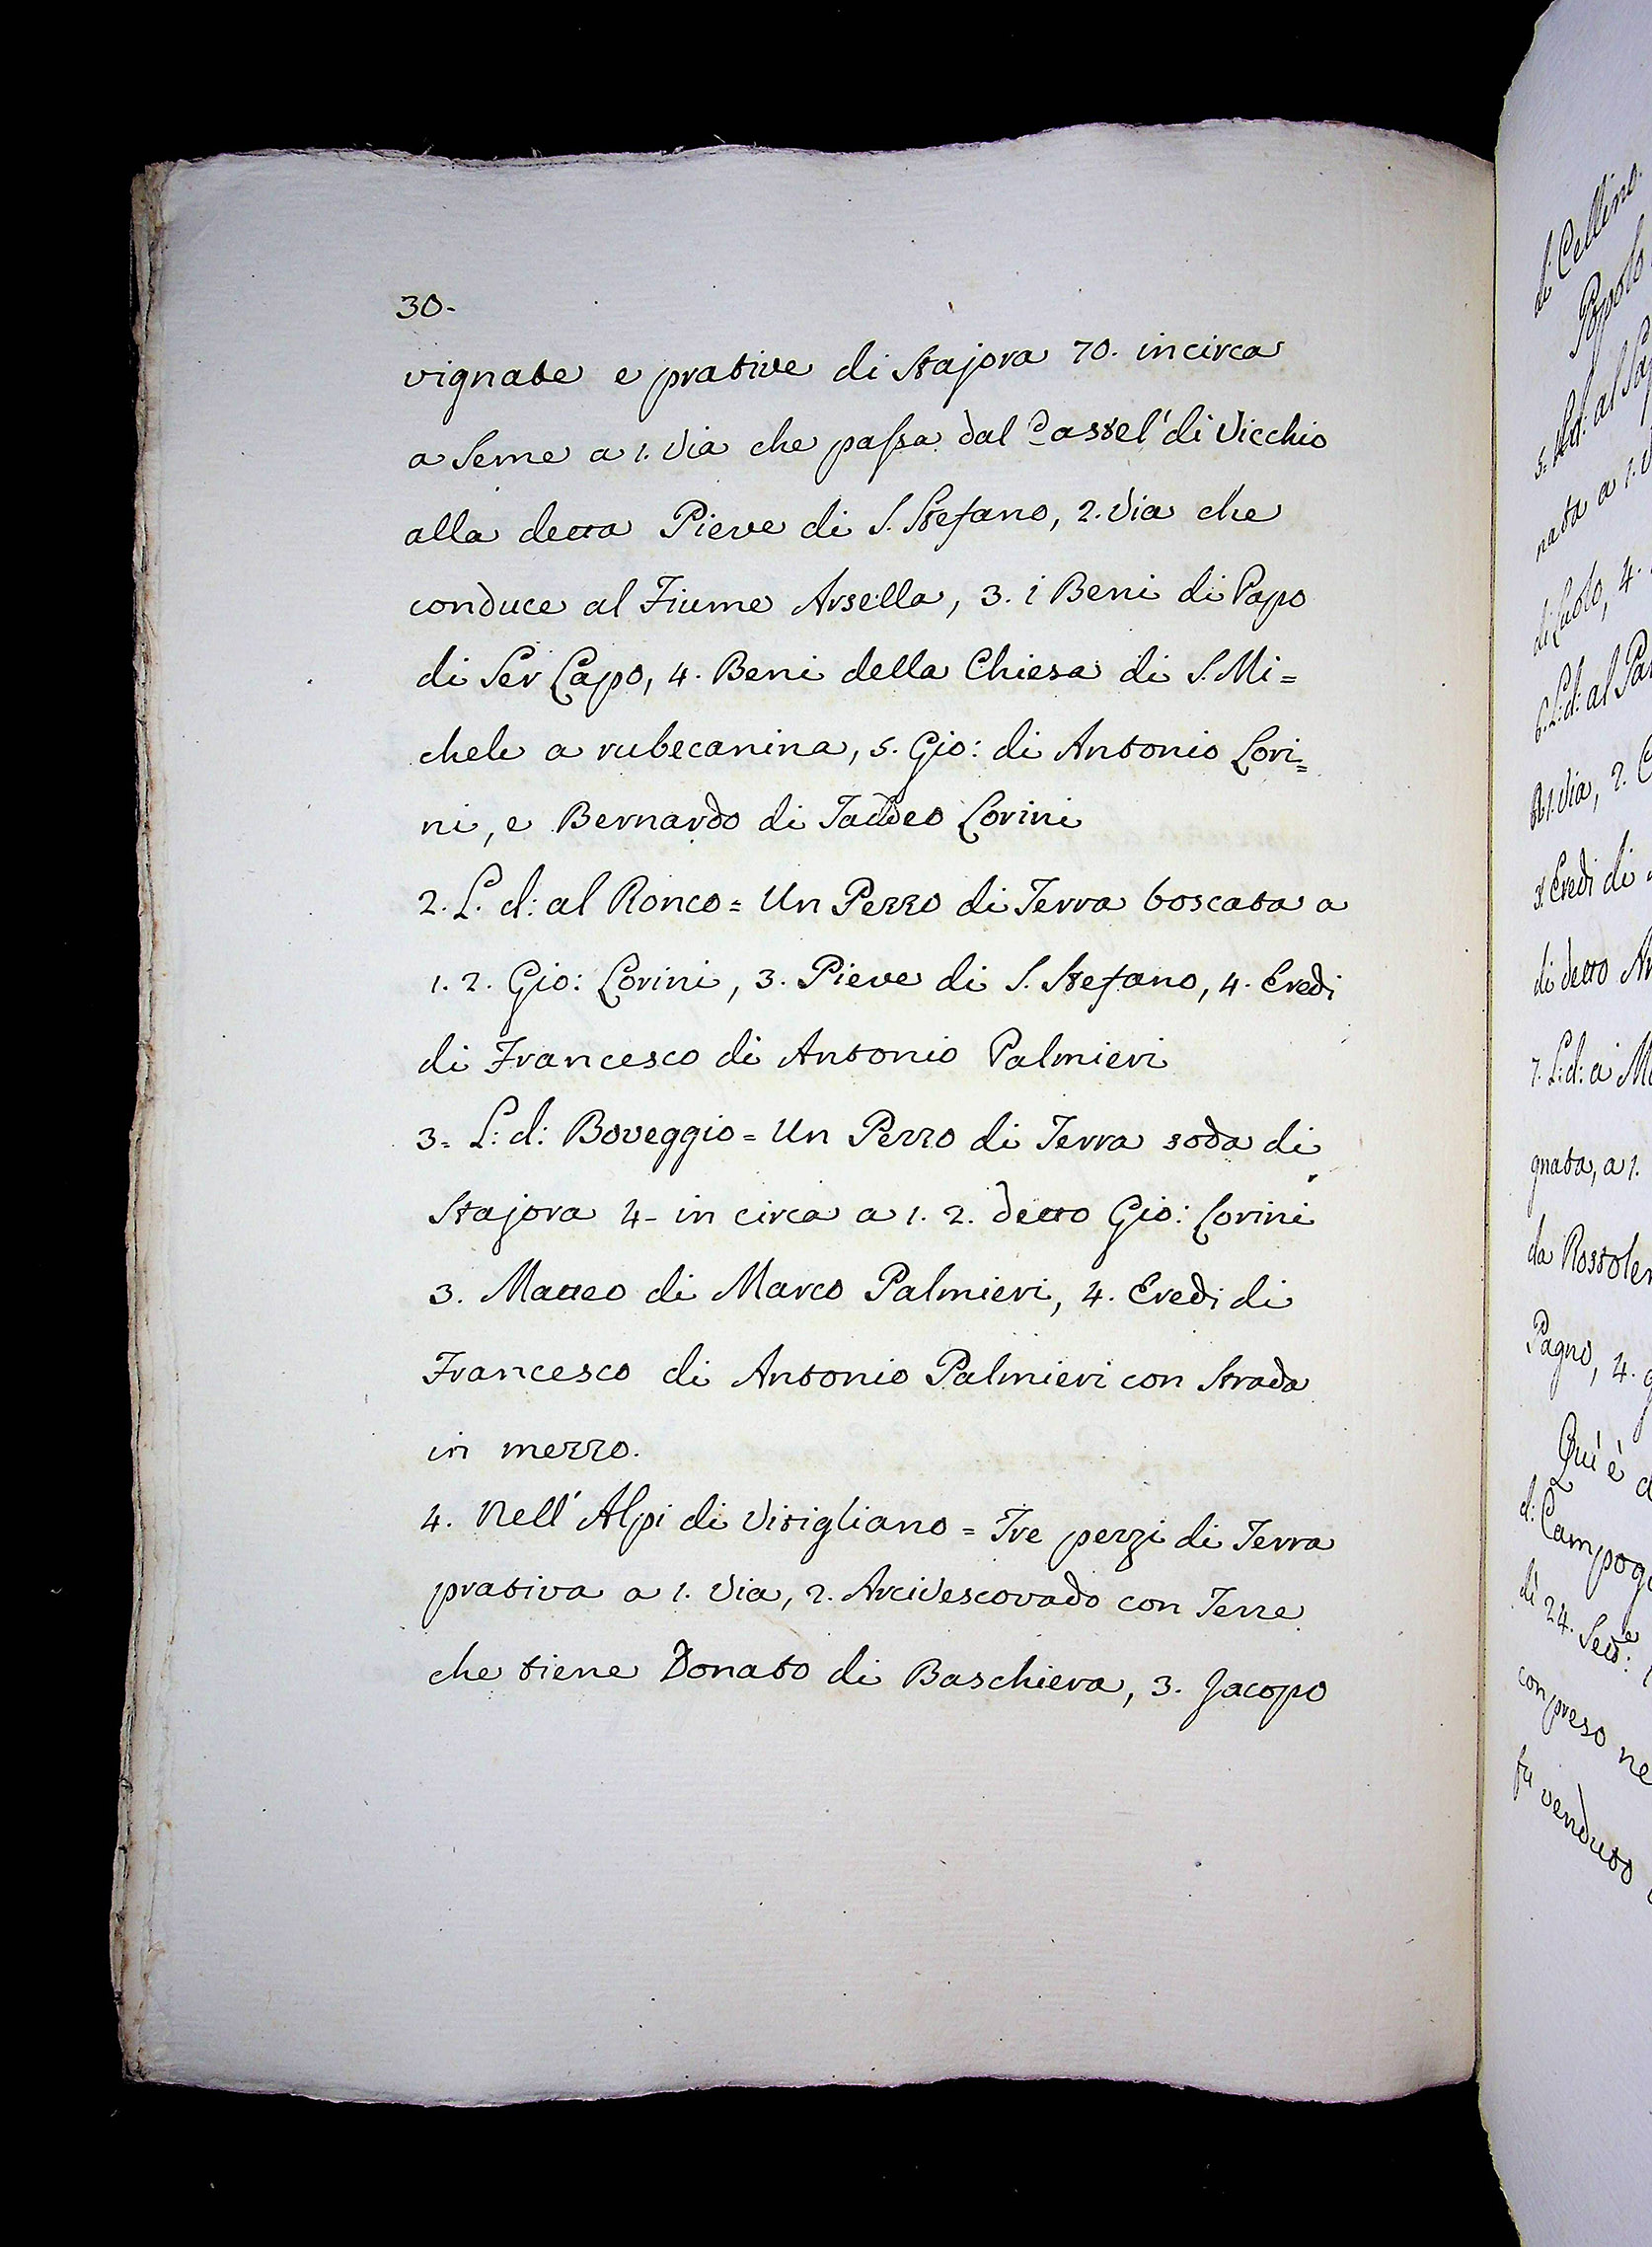 30.
vignate e prative di Stajora 70. incirca
a Seme a 1. Via che passa dal Castel' di Vicchio
alla detta Pieve di S. Stefano, 2. Via che
conduce al Fiume Arsella, 3. i Beni di Papo
di Ser Lapo, 4. Beni della Chiesa di S. Mi=
chele a rubecanina, 5. Gio: di Antonio Lori=
ni, e Bernardo di Taddeo Lorini
2. L. d: al Ronco = Un Pezzo di Terra boscata a
1. 2. Gio: Lorini, 3. Pieve di S. Stefano, 4. Eredi
di Francesco di Antonio Palmieri
3= L: d: Boveggio = Un Pezzo di Terra soda di
Stajora 4- in circa a 1. 2. detto Gio: Lorini
3. Matteo di Marco Palmieri, 4. Eredi di
Francesco di Antonio Palmieri con Strada
in mezzo.
4. Nell' Alpi di Vitigliano = Tre pezzi di Terra
prativa a 1. Via, 2. Arcivescovado con Terre
che tiene Donato di Baschiera, 3. Jacopo
di Cellino.
Popolo
5. L:d: al
nata a 1.
4.
6. L:d: al
1. Via, 2.
3. Eredi di
di detto
7. L:d: a
gnata, a 1.
da
Pagno, 4.
Qui è
d:
di 24.
compreso
fu venduto